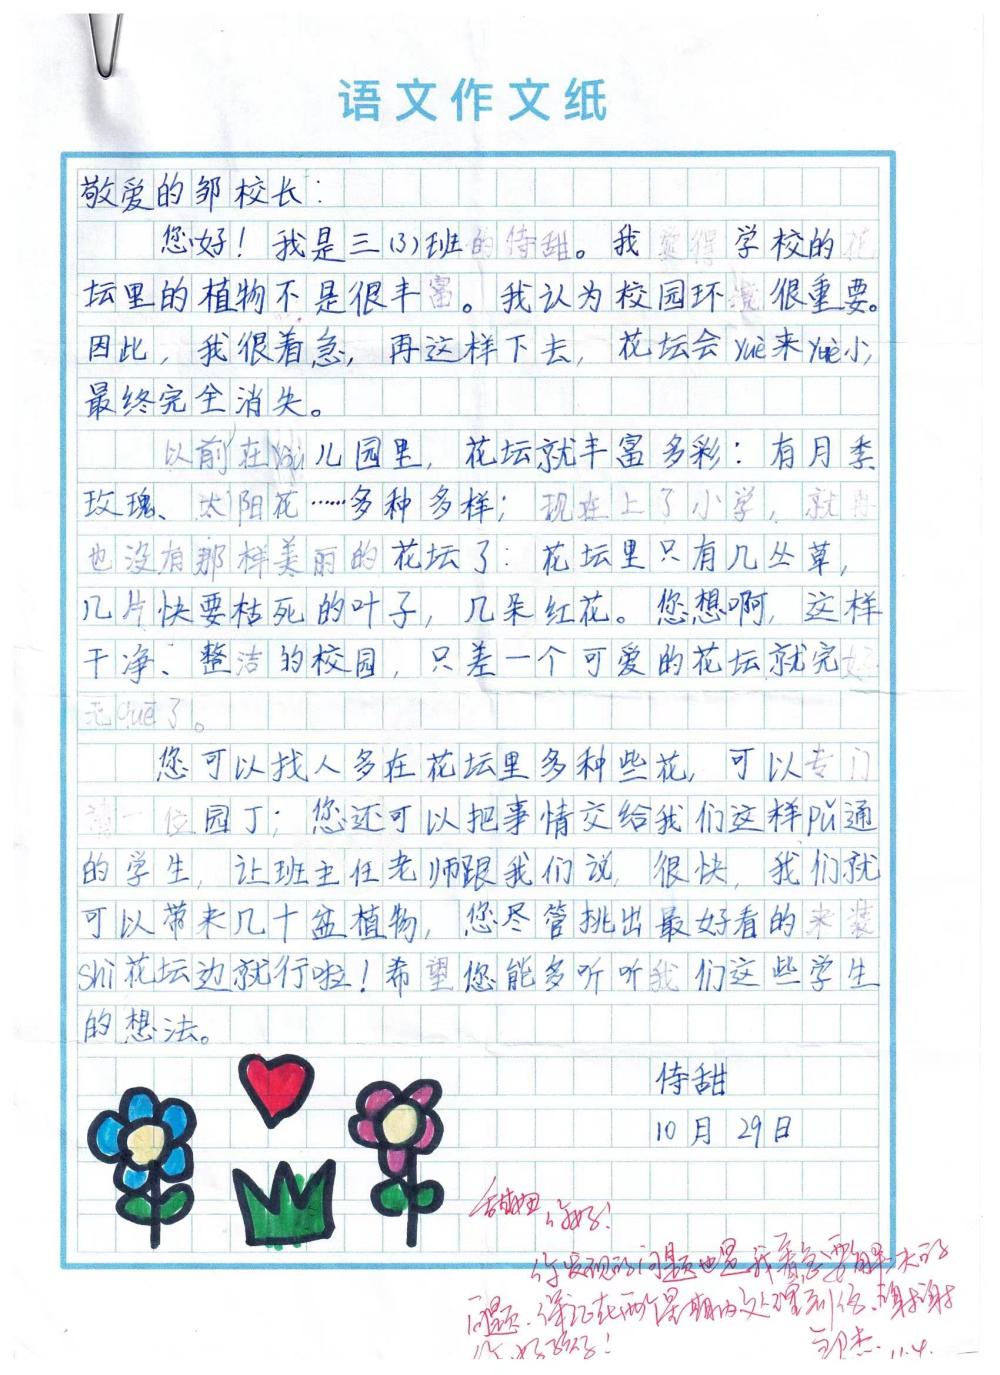 语文作文纸
敬爱的邹校长:
您好!我是三(3)班的侍甜。我觉得学校的花
坛里的植物不是很丰富。我认为校园环境很重要。
因此,我很着急,再这样下去,花坛会yuè来yuè小,
最终完全消失。
以前在yòu儿园里,花坛就丰富多彩:有月季
玫瑰、太阳花……多种多样;现在上了小学,就再
也没有那样美丽的花坛了:花坛里只有几丛草,
几片快要枯死的叶子,几朵红花。您想啊,这样
干净、整洁的校园,只差一个可爱的花坛就完好
无quē了。
您可以找人多在花坛里多种些花,可以专门
请一位园丁;您还可以把事情交给我们这样pǔ通
的学生,让班主任老师跟我们说,很快,我们就
可以带来几十盆植物,您尽管挑出最好看的来装
shì花坛边就行啦!希望您能多听听我们这些学生
的想法。
侍甜
10月29日
甜妞你好!
你发现的问题也是我着急要解决的
问题。保证在两个星期内处理到位、谢谢
你、好孩子!
邹杰.11.4.